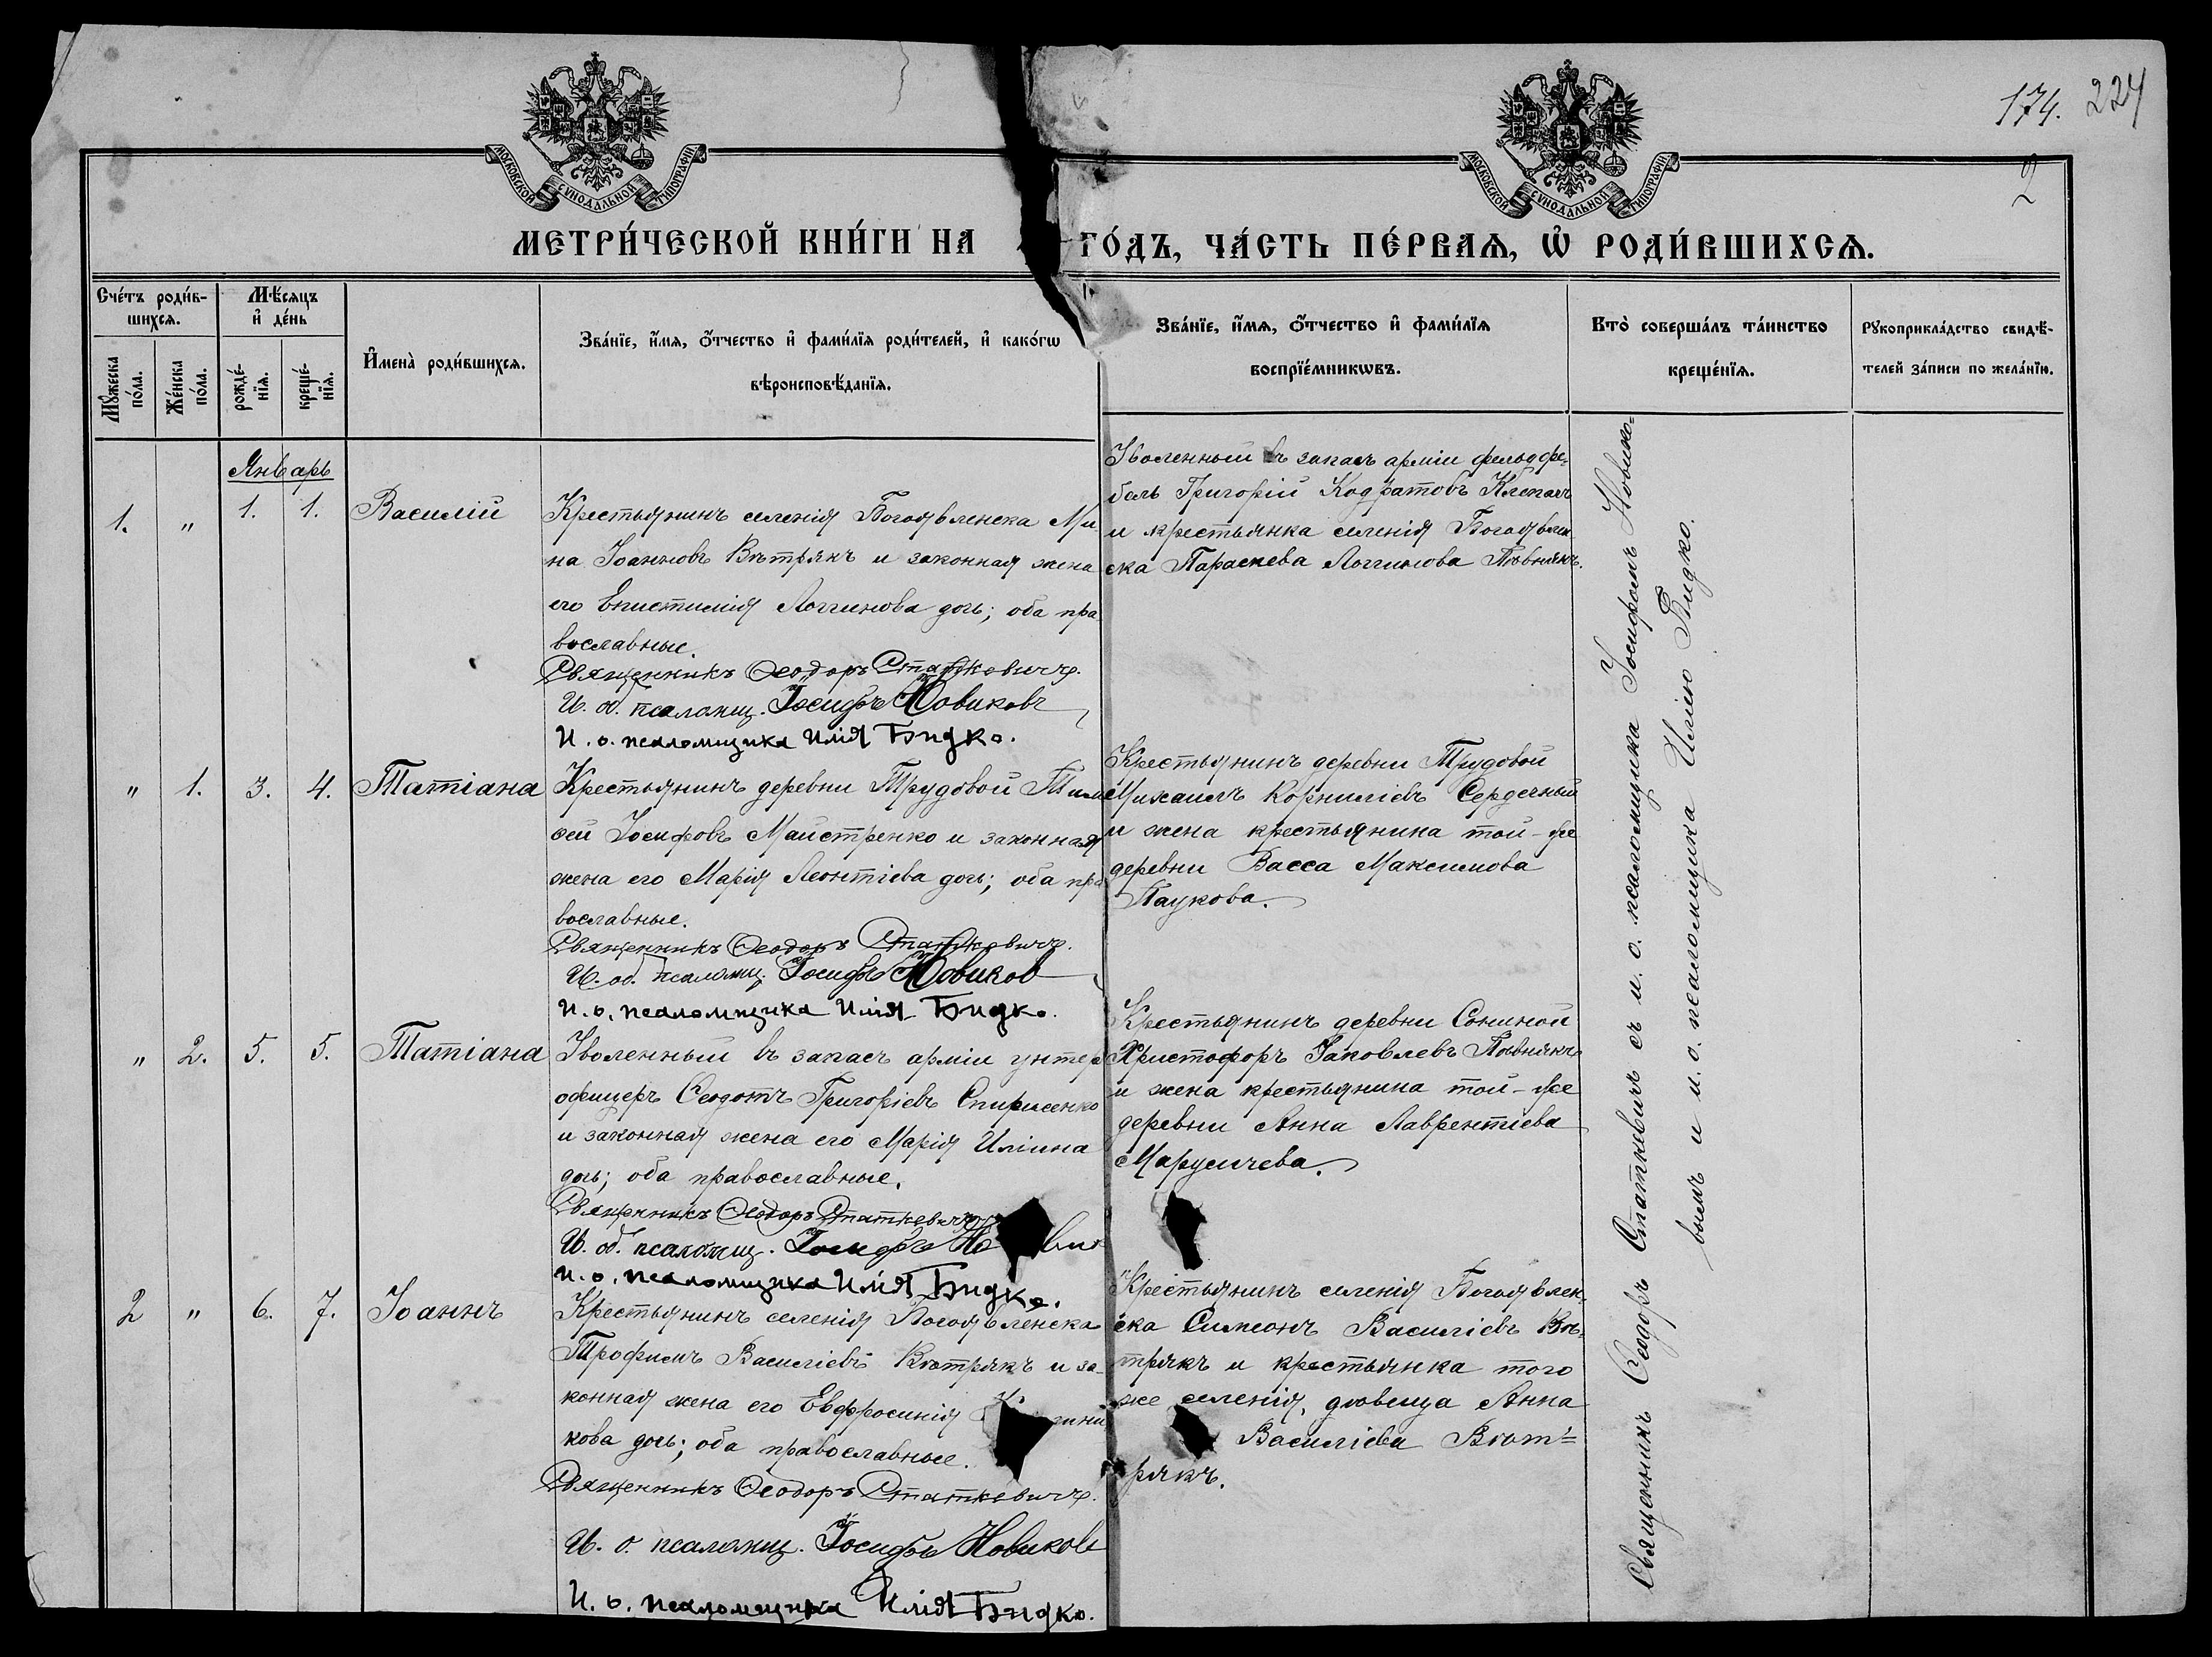 174. 224
2
МОСКОВСКОЙ СУНОДАЛЬНОЙ ТИПОГРАФІИ
МОСКОВСКОЙ СУНОДАЛЬНОЙ ТИПОГРАФІИ
МЕТРИ́ЧЕСКОЙ КНИ́ГИ НА ГО́ДЪ, ЧА́СТЬ ПЕ́РВАѦ, Ѡ҆ РОДИ́ВШИХСѦ.
Сче́тъ роди́в-
шихсѧ.
Мѣ́сяцъ
и҆ де́нь
Мꙋжеска
по́ла.
Же́нска
по́ла.
рожде́-
нїѧ.
креще́-
нїѧ.
И҆мена̀ роди́вшихсѧ.
Зва́нїе, и҆́мѧ, ѻ҆́тчество и҆ фами́лїѧ роди́телей, и҆ како́гѡ
вѣроисповѣ́данїѧ.
Зва́нїе, и҆́мѧ, ѻ҆́тчество и҆ фами́лїѧ
воспрїе́мникѡвъ.
Кто̀ соверша́лъ та́инство
креще́нїѧ.
Рꙋкоприкла́дство свидѣ́-
телей за́писи по жела́нїю.
Январь
1. " 1. 1. Василій
Крестьянинъ селенія Богоявленска Ми-
на Іоанновъ Вѣтрякъ и законная жена
его Епистимія Логгинова дочь; оба пра-
вославные.
Священникъ Ѳеодоръ Статкевичъ.
И. об. псаломщ. Іосифъ Новиковъ
И. о. псаломщика Илія Бидко.
Уволенный въ запасъ арміи фельдфе-
бель Григорій Кодратовъ
и крестьянка селенія Богоявлен
ска Параскева Логгинова Пѣвнякъ.
" 1. 3. 4. Татіана
Крестьянинъ деревни Трудовой Тимо
ѳей Іосифовъ Майстренко и законная
жена его Марія Леонтіева дочь; оба пра
вославные.
Священникъ Ѳеодоръ Статкевичъ.
И. об. псаломщ. Іосифъ Новиков
И. о. псаломщика Илія Бидко.
Крестьянинъ деревни Трудовой
Михаилъ Корниліевъ Сердечный
и жена крестьянина той-же
деревни Васса Максимова
Паукова.
" 2. 5. 5. Татіана
Уволенный въ запасъ арміи унтеръ
офицеръ Ѳеодотъ Григоріевъ
и законная жена его Марія Иліина
дочь; оба православные.
Священникъ Ѳеодоръ Статкевичъ
И. об. псаломщ. Іосифъ
И. о. псаломщика Илія Бидко.
Крестьянинъ деревни Сониной
Христофоръ Іаковлевъ Пѣвнякъ
и жена крестьянина той-же
деревни Анна Лаврентіева
Марусичева.
2 " 6. 7. Іоаннъ
Крестьянинъ селенія Богоявленска
Трофимъ Василіевъ Вѣтрякъ и за-
конная жена его Евфросинія
кова дочь; оба православные.
Священникъ Ѳеодоръ Статкевичъ.
И. о. псаломщ. Іосифъ Новиковъ
И. о. псаломщика Илія Бидко.
Крестьянинъ селенія Богоявлен-
ска Симеонъ Василіевъ Вѣ-
трякъ и крестьянка того
же селенія, дѣвица Анна
Василіева Вѣт-
рякъ.
Священникъ Ѳеодоръ Статкевичъ съ и. о. псаломщика Іосифомъ Новико-
вымъ и и. о. псаломщика Иліею Бидко.